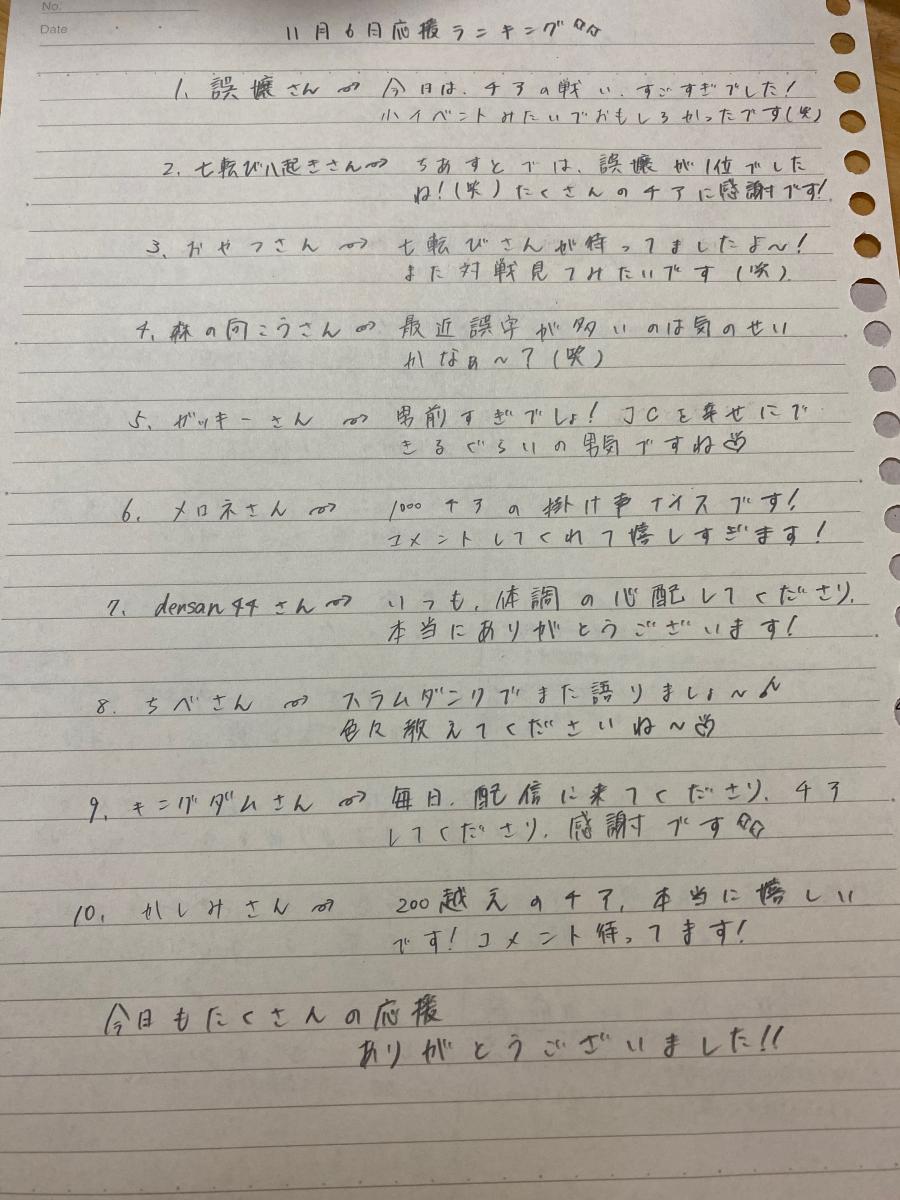 No.
Date
11月6日応援ランキング
1. 誤嬢さん⇒ 今日は、チアの戦い、すごすぎでした!
小イベントみたいでおもしろかったです(笑)
2. 七転び八起きさん⇒ ちあすとでは、誤嬢が1位でした
ね!(笑)たくさんのチアに感謝です!
3. おやつさん⇒ 七転びさんが待ってましたよ〜!
また対戦見てみたいです(笑)
4. 森の向こうさん⇒ 最近誤字が多いのは気のせい
かなぁ〜?(笑)
5. ガッキーさん⇒ 男前すぎでしょ! JCを幸せにで
きるぐらいの男気ですね
6. メロネさん⇒ 1000チアの掛け率ナイスです!
コメントしてくれて嬉しすぎます!
7. densan44さん⇒ いつも、体調の心配してくださり、
本当にありがとうございます!
8. ちべさん⇒ スラムダンクでまた語りましょ〜♪
色々教えてくださいね〜
9. キングダムさん⇒ 毎日、配信に来てくださり、チア
してくださり、感謝です
10. かしみさん⇒ 200越えのチア、本当に嬉しい
です!コメント待ってます!
今日もたくさんの応援
ありがとうございました!!